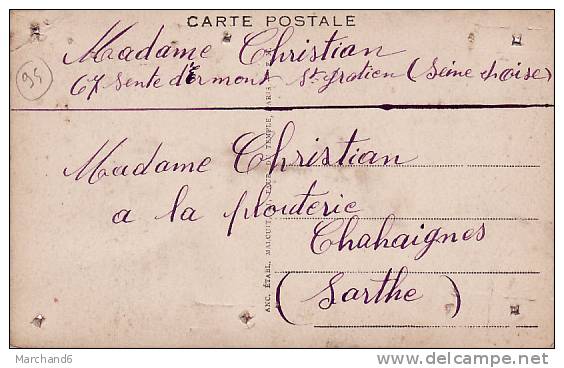 CARTE POSTALE
95
Madame Christian
67 sente d'Ermont St gratien (Seine et oise)
Madame Christian
a la plouterie
Chahaignes
(Sarthe)
ANC. ÉTABL. MALCUIT, FAUB. DU TEMPLE, PARIS
Marchand6
delcampe.net